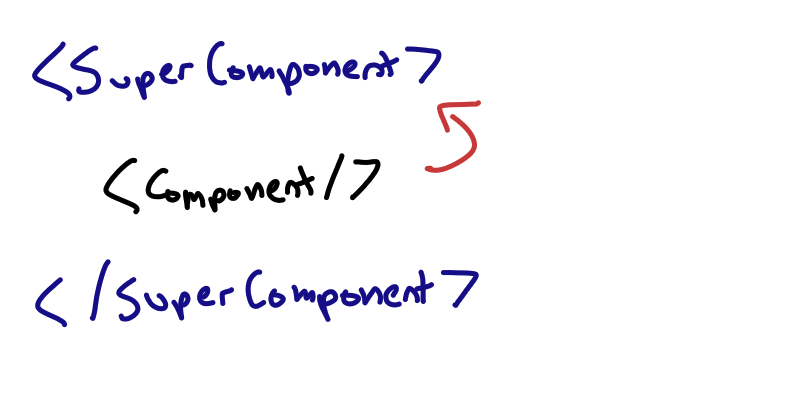 <SuperComponent>
<Component/>
</SuperComponent>